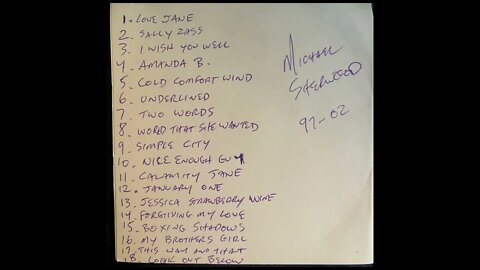 1. LOVE JANE
2. SALLY ZASS
3. I WISH YOU WELL
4. AMANDA B.
5. COLD COMFORT WIND
6. UNDERLINED
7. TWO WORDS
8. WORD THAT SHE WANTED
9. SIMPLE CITY
10. NICE ENOUGH GUY
11. CALAMITY JANE
12. JANUARY ONE
13. JESSICA STRAWBERRY WINE
14. FORGIVING MY LOVE
15. BOXING SHADOWS
16. MY BROTHERS GIRL
17. THIS WAY AND THAT
18. LOOK OUT BELOW
MICHAEL
SHERWOOD
97-02